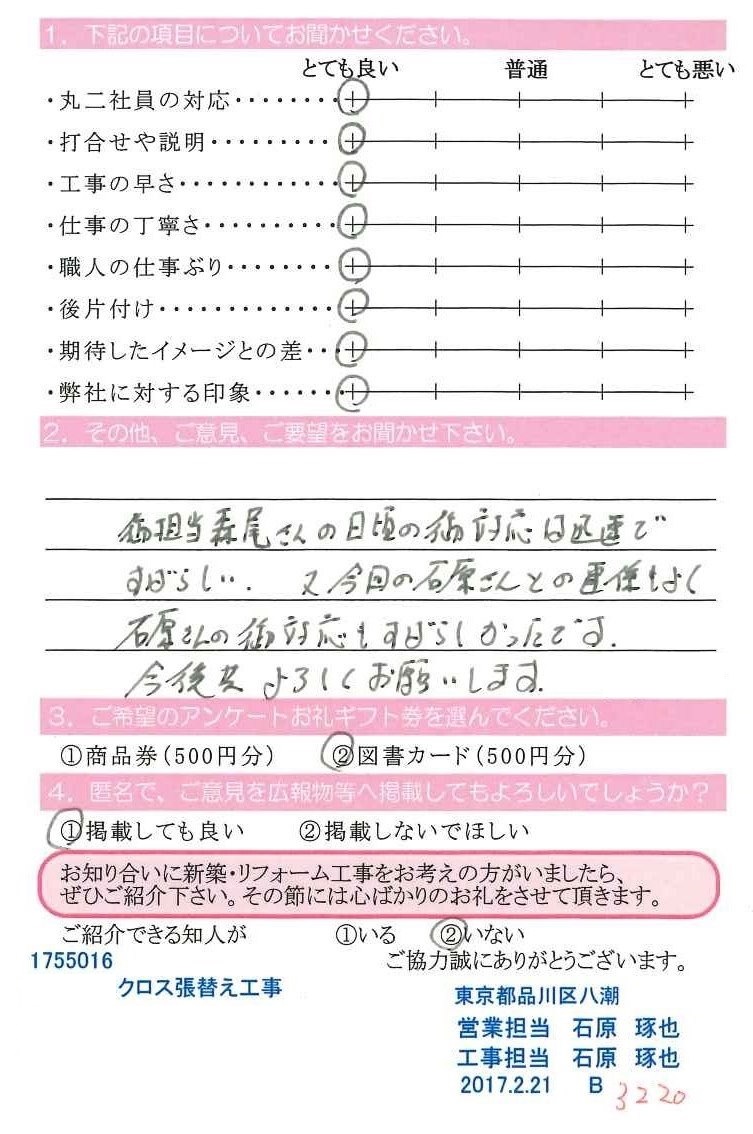 1. 下記の項目についてお聞かせください。
とても良い 普通 とても悪い
・丸二社員の対応・・・・・・・・
・打合せや説明・・・・・・・・・
・工事の早さ・・・・・・・・・・・・
・仕事の丁寧さ・・・・・・・・・・
・職人の仕事ぶり・・・・・・・・
・後片付け・・・・・・・・・・・・・
・期待したイメージとの差・・・
・弊社に対する印象・・・・・・・
2. その他、ご意見、ご要望をお聞かせ下さい。
御担当森尾さんの日頃の御対応は迅速で
すばらしい. 又今回の石原さんとの連係もよく
石原さんの御対応もすばらしかったです.
今後共よろしくお願いします.
3. ご希望のアンケートお礼ギフト券を選んでください。
①商品券(500円分) ②図書カード(500円分)
4. 匿名で、ご意見を広報物等へ掲載してもよろしいでしょうか?
①掲載しても良い ②掲載しないでほしい
お知り合いに新築・リフォーム工事をお考えの方がいましたら、
ぜひご紹介下さい。その節には心ばかりのお礼をさせて頂きます。
ご紹介できる知人が ①いる ②いない
1755016 ご協力誠にありがとうございます。
クロス張替え工事
東京都品川区八潮
営業担当 石原 琢也
工事担当 石原 琢也
2017.2.21 B 3220